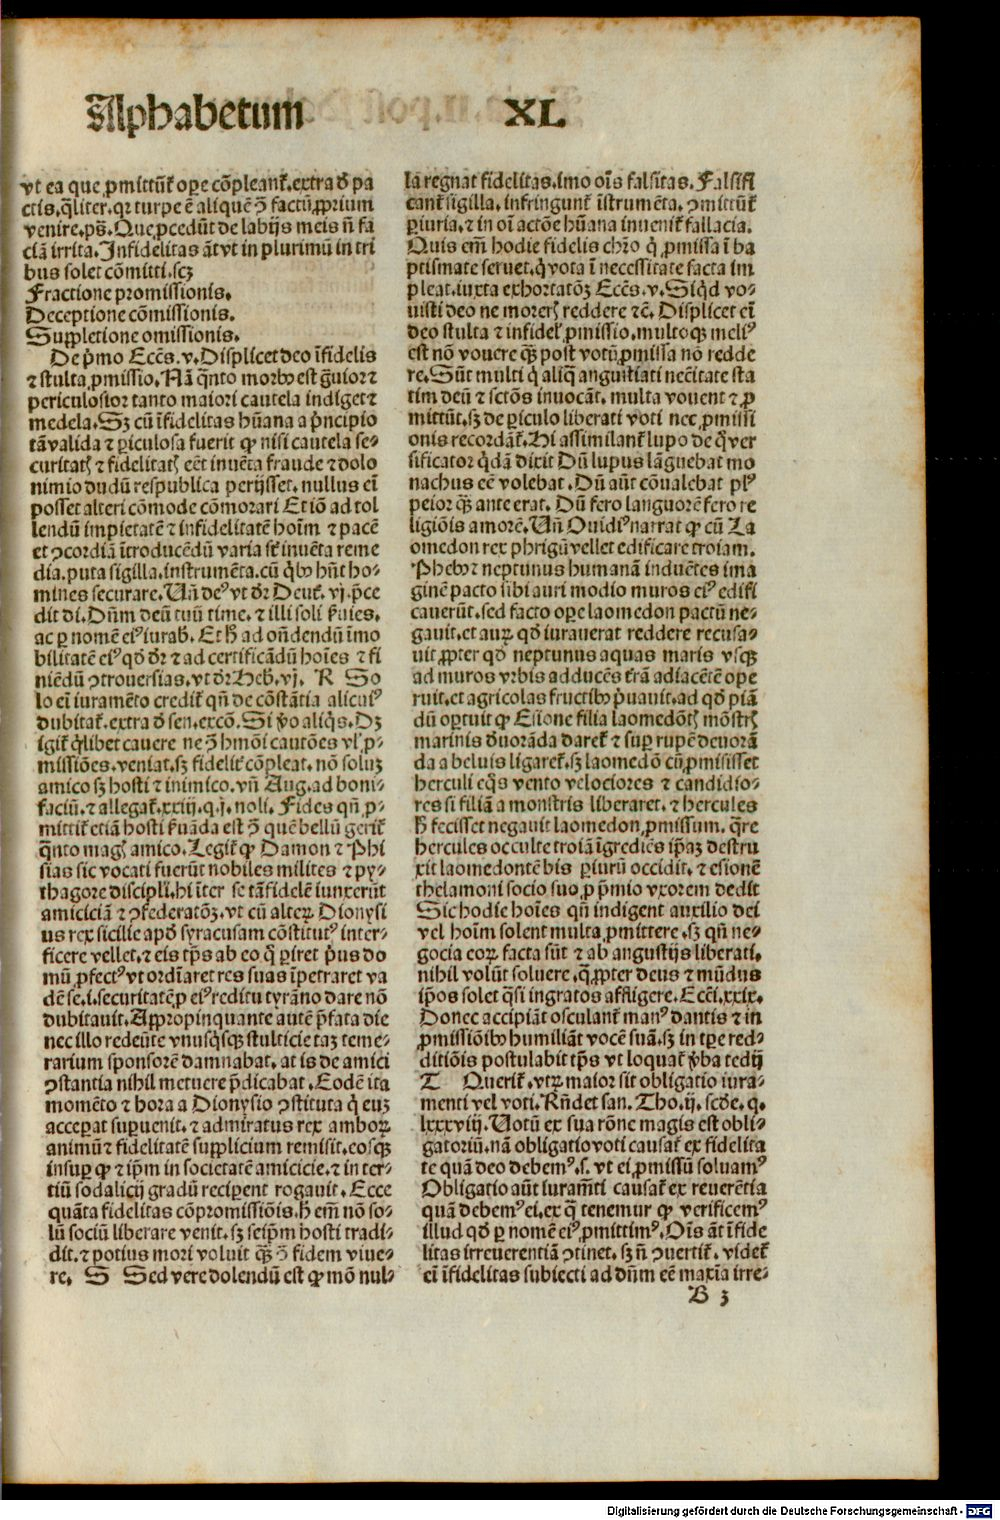 Alphabetum XL
vt ea que ꝓmittūt᷑ oꝑe cõpleant᷑.extra đ pa
ctis.q̃liter.qꝛ turpe ē aliquē ꝯ factū ꝓprium
venire.ps̃. Que ꝓcedūt de labijs meis nō fa
ciā irrita. Infidelitas āt vt in plurimū in tri
bus solet cõmitti.scꝫ
Fractione promissionis.
Deceptione cõmissionis.
Suppletione omissionis.
De p̃mo Ecc̃s.v. Displicet deo ĩfidelis
⁊ stulta ꝓmissio. Nã q̃nto morbꝰ est g̃uior ⁊
periculosior tanto maiori cautela indiget ⁊
medela. Sꝫ cū ĩfidelitas hūana a p̃ncipio
tā valida ⁊ ꝑiculosa fuerit ꝙ nisi cautela se-
curitatꝭ ⁊ fidelitatꝭ eēt inuēta fraude ⁊ dolo
nimio dudū respublica perijsset. nullus eĩ
posset alteri cõmode cõmorari Et iō ad tol
lendū impietatē ⁊ infidelitatē hoĩm ⁊ pacē
et ꝯcordiā ĩtroducēdū varia st̃ inuēta reme
dia. puta sigilla. instrumēta. cū q̇bꝰ hn̄t ho-
mines securare. Vñ deꝰ vt dr̃ Deut̃. vj. p̃ce
dit di. Dn̄m deū tuū time. ⁊ illi soli s̃uies.
ac ꝑ nomē eiꝰ iurab̃. Et h̃ ad on̄dendū ĩmo
bilitatē eiꝰ qď dr̃ ⁊ ad certificãdū hoĩes ⁊ fi
niēdū ꝯtrouersias. vt dr̃ Heb̃. vj. R So
lo eĩ iuramēto credit᷑ qn̄ de cõstātia alicuiꝰ
dubitat᷑. extra đ sen. excō. Si ꝟo aliq̇s. Dꝫ
igit᷑ q̇libet cauere ne ꝯ hmōi cautões vl̓ ꝓ-
missiões. veniat. sꝫ fidelit᷑ cõpleat. nō soluꝫ
amico sꝫ hosti ⁊ inimico. vñ Aug. ad boni-
faciū. ⁊ allegat᷑. xxiij. q. j. noli. Fides qn̄ ꝓ-
mittit᷑ etiā hosti s̃uāda est ꝯ quē bellū gerit᷑
q̃nto magꝭ amico. Legit᷑ ꝙ Damon ⁊ Phi
sias sic vocati fuerūt nobiles milites ⁊ py-
thagore discipl̓i. hi ĩter se tā fidelē iunxerūt
amiciciā ⁊ ꝯfederatõꝫ. vt cū alteꝝ Dionysi
us rex sicilie apď syracusam cõstitutꝰ inter-
ficere vellet. ⁊ eis tp̃s ab eo q̊ ꝑiret p̃us do
mū ꝓfectꝰ vt ordĩaret res suas ĩpetraret va
dē se. i. securitatē ꝓ eiꝰ reditu tyrāno dare nō
dubitauit. Appropinquante autē p̃fata die
nec illo redeūte vnusq̇sqꝫ stulticie taꝫ teme-
rarium sponsorē damnabat. at is de amici
ꝯstantia nihil metuere p̃dicabat. Eodē ita
momēto ⁊ hora a Dionysio ꝯstituta q̇ euꝫ
acceperat suꝑuenit. ⁊ admiratus rex amboꝝ
animū ⁊ fidelitatē supplicium remisit. eosqꝫ
insuꝑ ꝙ ⁊ ip̄m in societatē amicicie. ⁊ in ter-
tiū sodalicij gradū reciperent rogauit. Ecce
quāta fidelitas cõpromissiõis. h̃ em̄ nō so-
lū sociū liberare venit. sꝫ seip̄m hosti tradi-
dit. ⁊ potius mori voluit q̃ꝫ ꝯ fidem viue-
re. S Sed vere dolendū est ꝙ mō nul-
la regnat fidelitas. imo oĩs falsitas. Falsifi
cant᷑ sigilla. infringunt᷑ ĩstrumēta. ꝯmittūt᷑
ꝑiuria. ⁊ in oĩ actõe hūana inuenit᷑ fallacia.
Quis em̄ hodie fidelis chr̃o q̇ ꝓmissa ĩ ba
ptismate seruet. q̇ vota ĩ necessitate facta im
pleat. iuxta exhortatõꝫ Ecc̃s. v. Siq̇d vo-
uisti deo ne morerꝭ reddere ⁊c̃. Displicet eĩ
deo stulta ⁊ infidel̓ ꝓmissio. multoqꝫ meliꝰ
est nō vouere q̃ꝫ post votū ꝓmissa nō redde
re. Sūt multi q̇ aliq̃ angustiati nec̄itate sta
tim deū ⁊ sctõs inuocāt. multa vouent ⁊ ꝓ
mittūt. sꝫ de ꝑiculo liberati voti nec ꝓmissi
onis recordāt᷑. Hi assimilant᷑ lupo de q̊ ver
sificator q̇dā dixit Dū lupus lāguebat mo
nachus eē volebat. Dū aūt cõualebat plꝰ
peior q̃ꝫ ante erat. Dū fero languorē fero re
ligiõis amorē. Vñ Ouidiꝰ narrat ꝙ cū La
omedon rex phrigū vellet edificare troiam.
Phebꝰ ⁊ neptunus humanā induētes ima
ginē pacto sibi auri modio muros eiꝰ edifi
cauerūt. sed facto oꝑe laomedon pactū ne-
gauit. et auꝝ qď iurauerat reddere recusa-
uit ꝓpter qď neptunus aquas maris vsqꝫ
ad muros vrbis adducēs t̃rā adiacētē ope
ruit. et agricolas fructibꝰ p̃uauit. ad qď piā
dū oꝑtuit ꝙ Esione filia laomedōtꝭ mōstrꝭ
marinis đuorāda daret᷑ ⁊ suꝑ rupē deuorā
da a beluis ligaret᷑. sꝫ laomedō cū ꝓmisisset
herculi eq̊s vento velociores ⁊ candidio-
res si filiā a monstris liberaret. ⁊ hercules
h̃ fecisset negauit laomedon ꝓmissum. q̃re
hercules occulte troiā ĩgrediēs ip̄aꝫ destru
xit laomedontē bis ꝑiurū occidit. ⁊ esionē
thelamoni socio suo ꝓ p̃mio vxorem dedit
Sic hodie hoĩes qn̄ indigent auxilio dei
vel hoĩm solent multa ꝓmittere. sꝫ qn̄ ne-
gocia eoꝝ facta sūt ⁊ ab angustijs liberati.
nihil volūt soluere. q̃ꝓpter deus ⁊ mūdus
ip̄os solet q̃si ingratos affligere. Ecc̄i. xxix.
Donec accipiāt osculant᷑ manꝰ dantis ⁊ in
ꝓmissiõibꝰ humiliāt vocē suā. sꝫ in tꝑe red-
ditiõis postulabit tp̃s ⁊ loquat᷑ ꝟba tedij
T Querit᷑. vtꝝ maior sit obligatio iura-
menti vel voti. Rn̄det san. Tho. ij. scđe. q.
lxxxviij. Votū ex sua rōne magis est obli-
gatoriū. nā obligatio voti causat᷑ ex fidelita
te quā deo debemꝰ. s. vt ei ꝓmissū soluamꝰ
Obligatio aūt iuram̄ti causat᷑ ex reuerētia
quā debemꝰ ei. ex q̃ tenemur ꝙ verificemꝰ
illud qď ꝑ nomē eiꝰ ꝓmittimꝰ. Oĩs āt ĩfide
litas irreuerentiā ꝯtinet. sꝫ nō ꝯuertit᷑. videt᷑
eĩ ĩfidelitas subiecti ad dn̄m eē maxĩa irre-
B 3
Digitalisierung gefördert durch die Deutsche Forschungsgemeinschaft - DFG